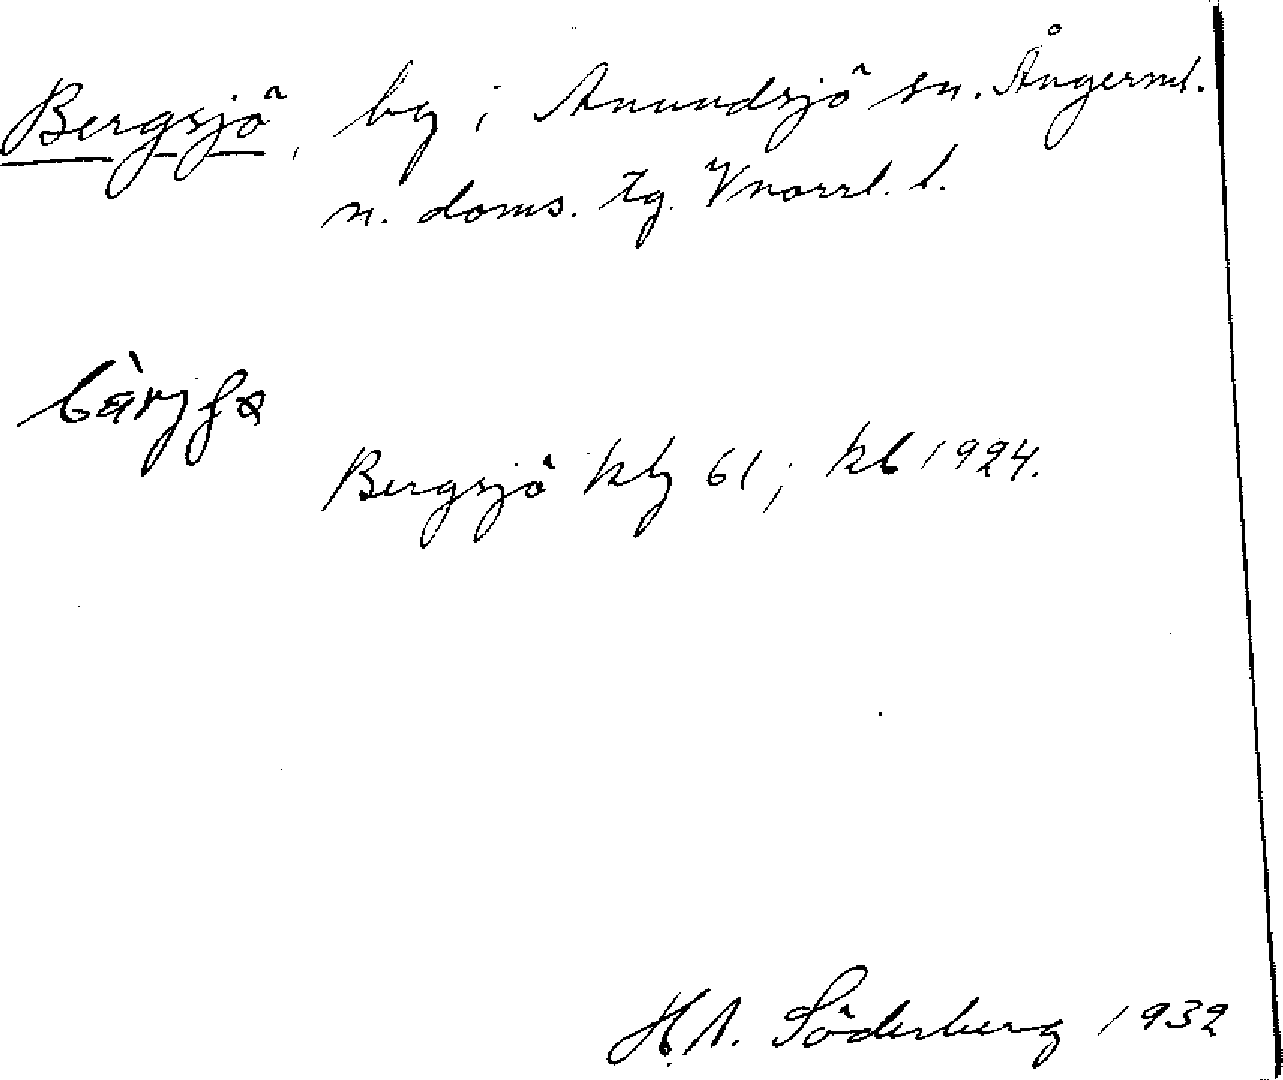 Bergsjö, by i Anundsjö sn. Ångerml.
n. doms. tg. Vnorrl. l.
Bergsjö kbg 61; kb 1924.
H.N. Söderberg 1932